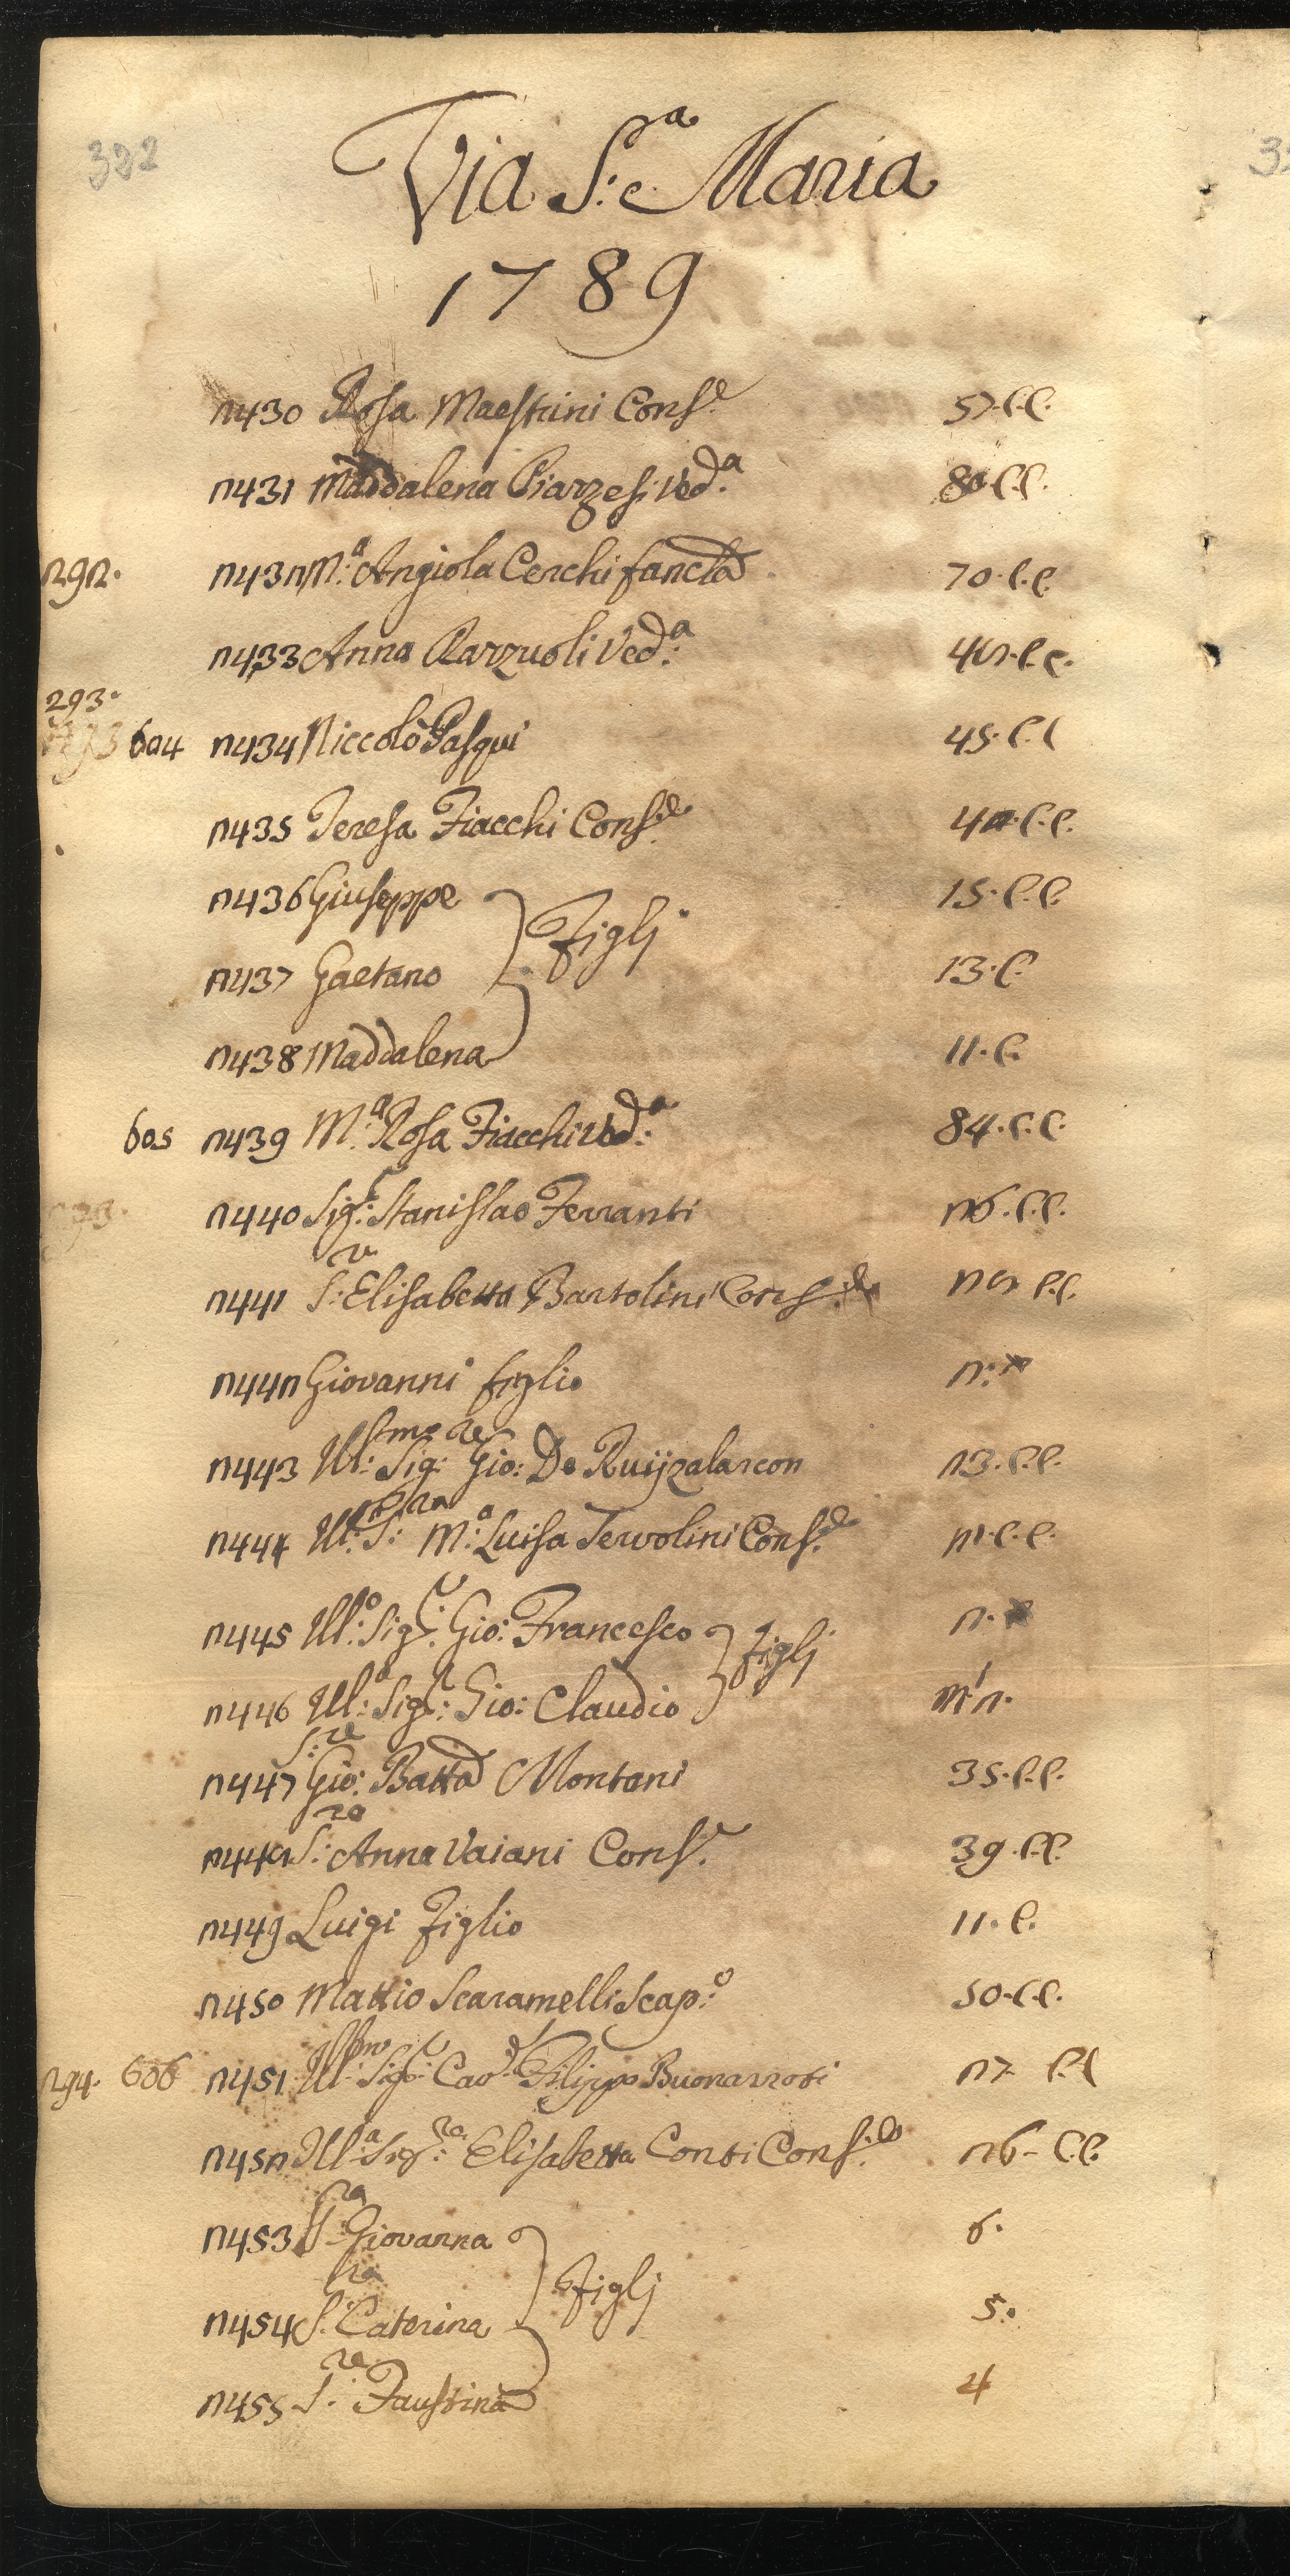 322
Via S.a Maria
1789
2430 Rosa Maestrini Cons.e 57.C.C.
2431 Maddalena Piarzesi Ved.a 80.C.C.
292. 2432 M.a Angiola Cerchi fancla 70.C.C.
2433 Anna Razzuoli Ved.a 48.C.C.
293.
604 2434 Niccolò Pasqui 45.C.C
2435 Teresa Fiacchi Cons.e 42.C.C.
2436 Giuseppe 15.C.C.
} Figlj
2437 Gaetano 13.C.
2438 Maddalena 11.C.
605 2439 M.a Rosa Fiacchi Ved.a 84.C.C.
2440 Sig.r Stanislao Ferranti 26.C.C.
2441 S.ra Elisabetta Bartolini Cons.e 28 C.C.
2442 Giovanni figlio 2.
2443 Ill.smo Sig.re Gio: De Ruijzalarcon 23.C.C.
2444 Ill.ma S.ra M.a Luisa Tervolini Cons.e 21.C.C.
2445 Ill.o Sig.r Gio: Francesco 2.
} figlj
2446 Ill.o Sig.r Gio: Claudio m 1/2.
2447 S.re Gio: Batta Montani 35.C.C.
2448 S.ra Anna Vaiani Cons.e 39.C.C.
2449 Luigi Figlio 11.C.
2450 Mattio Scaramelli Scap.o 50.C.C.
294. 606 2451 Ill.mo Sig.r Cav.e Filippo Buonarroti 27 C.C
2452 Ill.a Sig.ra Elisabetta Conti Cons.e 26 - C.C.
2453 S.ra Giovanna 6.
} Figlj
2454 S.ra Caterina 5.
2455 S.ra Faustina 4